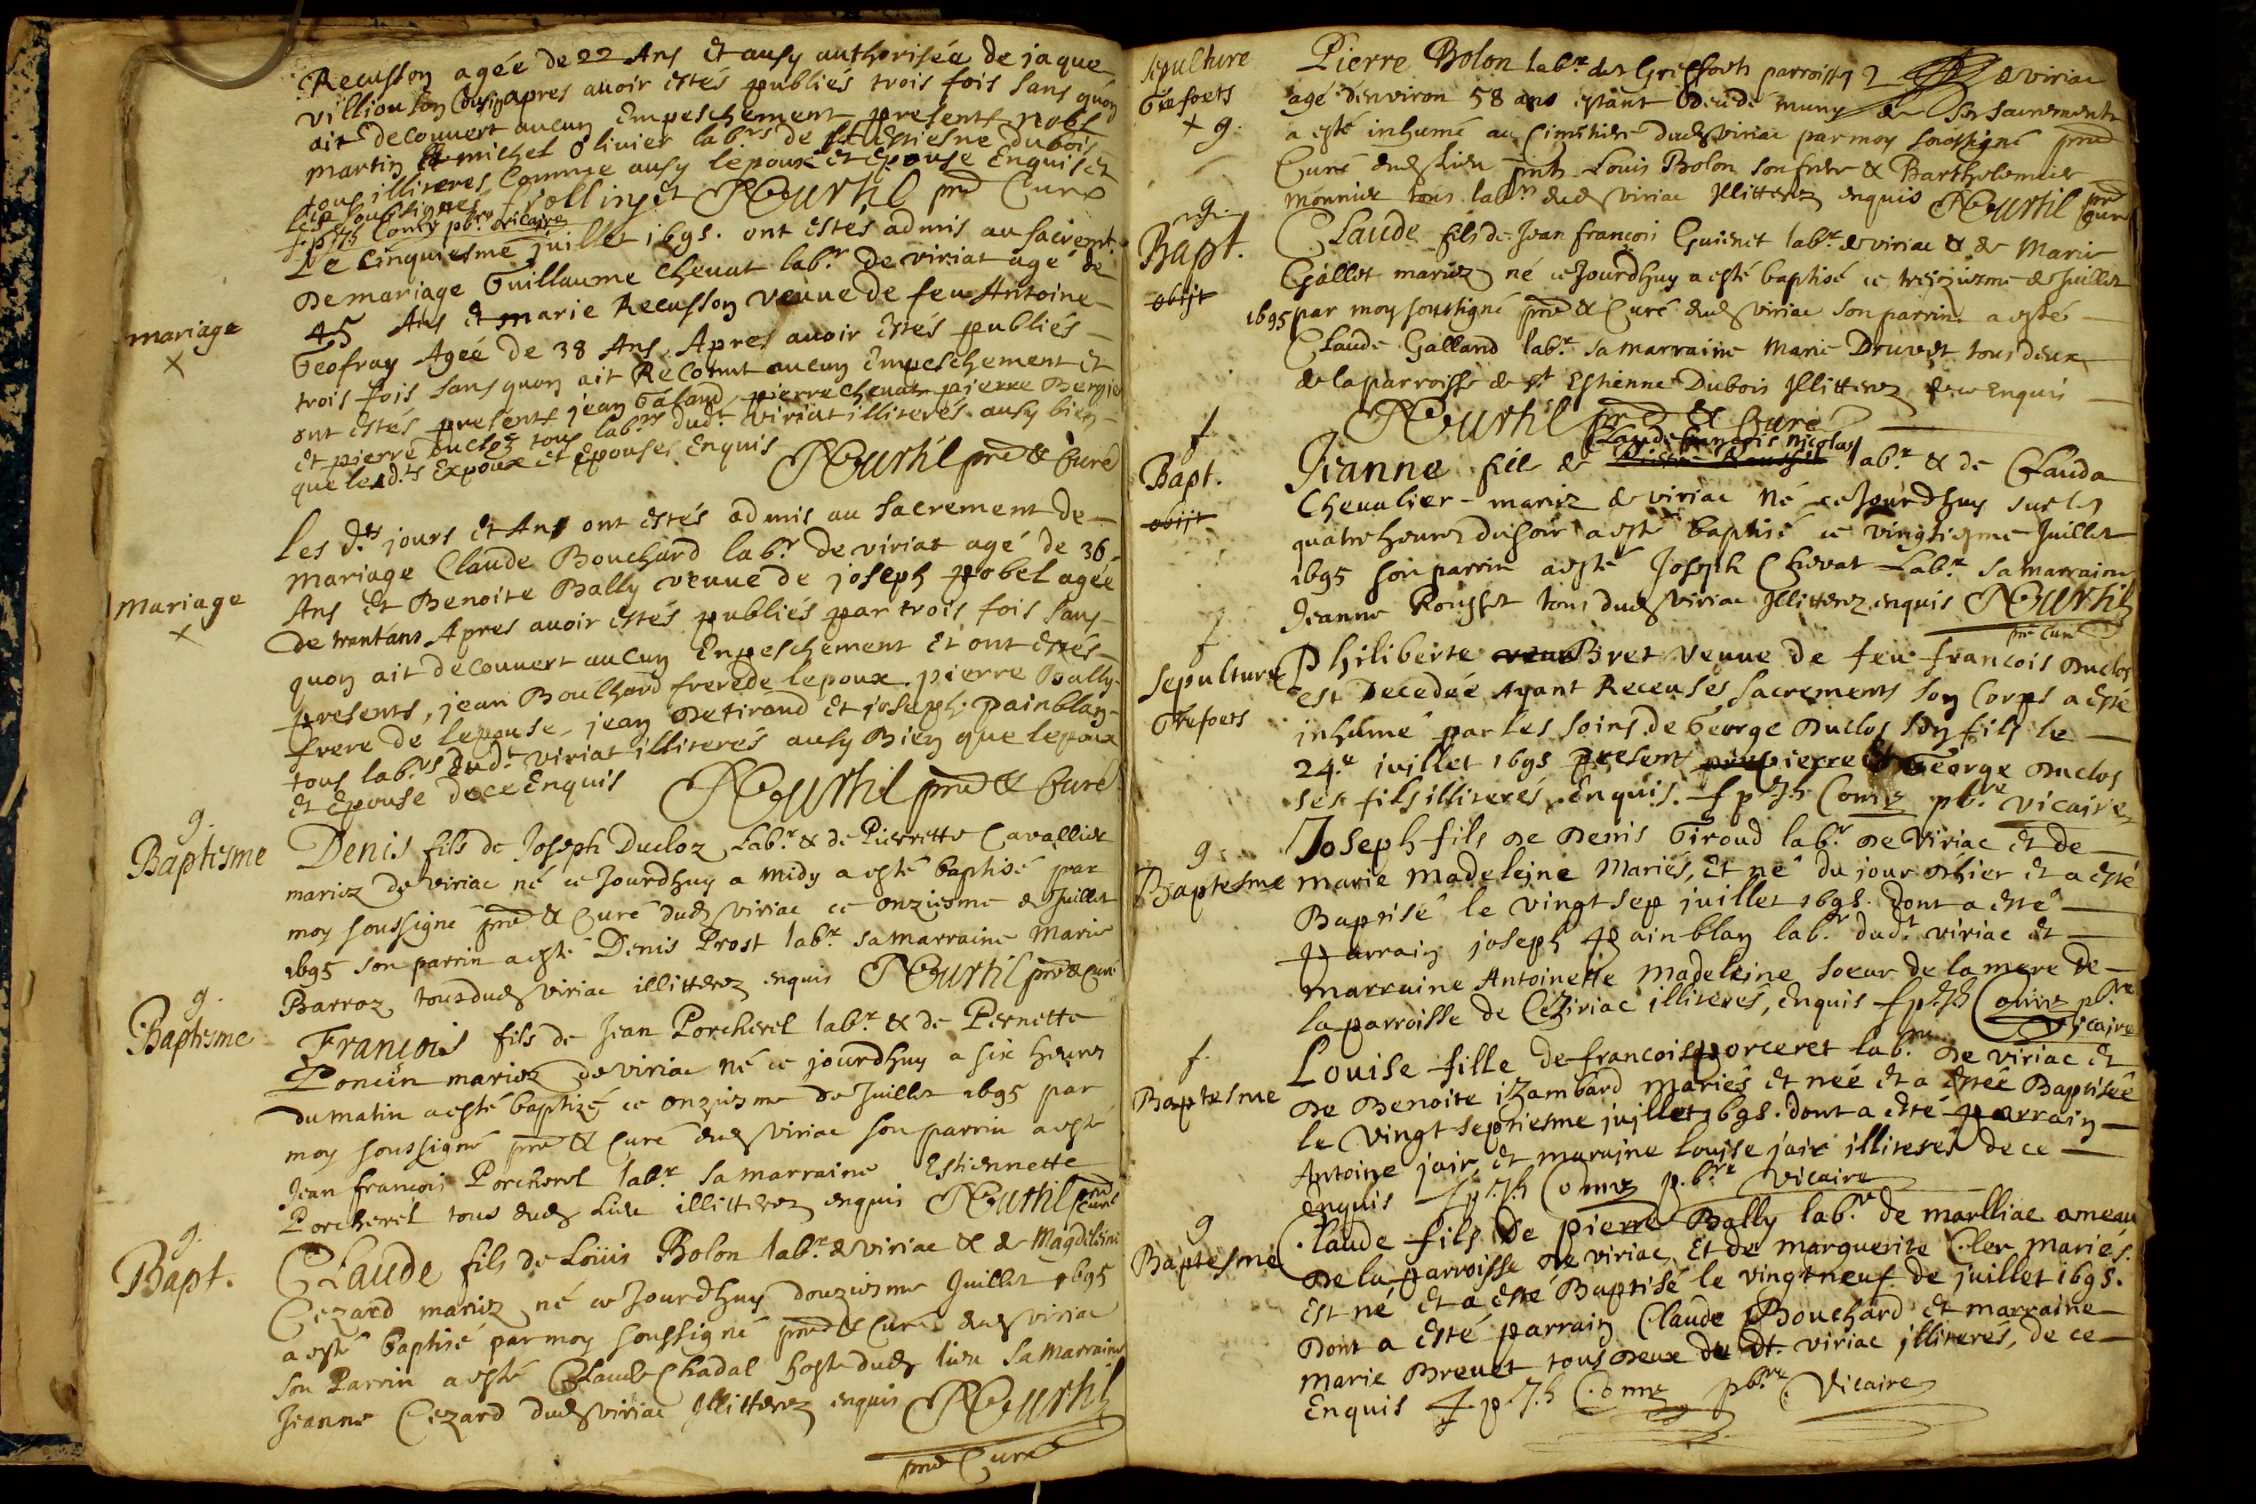 Recusson agée de 22 Ans Et ausy authorisée de jaque
villion son Cousin apres avoir estés publiés trois fois sans quon
ait decouvert aucun Empeschement presents nobl
martin et michel Olivier lab.rs de st Estiesne dubois
tous illiteres Comme ausy lepoux et Epouse Enquis et
les soubsignes frollinjet NCurthil pre Curé
f p Jh Comte pb.re vicaire
mariage
x
Le Cinquiesme juillet 1695. ont estés admis au sacremt.
De mariage Guillaume Chevat lab.r De viriat agé de
45 Ans Et marie Recusson veuve de feu Antoine
Geofray Agée De 38 Ans. Apres avoir Estés publiés
trois fois sans quon ait Reconnut aucun Empeschement Et
ont Estés presents jean Galand, pierre Chevat pierre Bergier
Et pierre Ducloz tous lab.rs dud.t viriat illiterés ausy bien
que lesd.ts Expoux Et Epouses Enquis NCurthil pre & Curé
Mariage
x
Les d.ts jours Et An ont estés admis au sacrement de
mariage Claude Bouchard lab.r de viriat agé de 36
Ans Et Benoite Bally veuve de joseph pobel agée
De trent'ans Apres avoir estés publiés par trois fois sans
quon ait decouvert aucun Enpeschement Et ont Estés
presents, jean Bouchard frere de lepoux. pierre Bally
frere de lepouse, jean Detiraud Et joseph. painblan
tous lab.rs dud.t viriat illiterés ausy Bien que lepoux
Et Epouse de ce Enquis NCurthil pre & Curé
g.
Baptesme
Denis fils de Joseph Ducloz Lab.r & de Pierrette Cavallier
mariez de viriac né ce Jourdhuy a midy a esté baptisé par
moy soussigné pre & Curé dud viriac ce onziesme de Juillet
1695 son parrin a esté Denis Prost lab.r sa marraine Marie
Barroz tous dud viriac illitterez enquis NCurthil pre & Curé
g.
Baptesme
François fils de Jean Porcherel lab.r & de Pernette
Poncin mariez de viriac né ce jourdhuy a six heures
du matin a esté baptizé ce onziesme de Juillet 1695 par
moy soussigné pre & Curé dud viriac son parrin a esté
Jean francois Porcherel lab.r sa marraine Estiennette
Porcherel tous dud Lieu illitterez enquis NCurthil pre Curé
g.
Bapt.
Claude fils de Loüis Bolon lab.r de viriac & de Magdeleine
Cezard mariez né ce Jourdhuy douziesme Juillet 1695
a esté baptisé par moy soussigné pre & Curé dud viriac
Son Parrin a esté Claude Chadal hoste dud lieu Sa Marraine
Jeanne Cezard dud viriac Illitterez enquis NCurthil
pre Curé
Sepulture
Gresoets
x g.
Pierre Bolon lab.r des Greffoets parroisse de viriac
agé denviron 58 ans estant decedé muny de Ses Sacrements
a esté inhumé au Cimetiere dud viriac par moy soussigné pre
Curé dud Lieu pnts Louis Bolon son frere & Barthelemier
Monnier tous lab.rs dud viriac Illitterez enquis NCurtil pre Curé
g.
Bapt.
obijt
Claude fils de Jean françois Guienet lab.r de viriac & de Marie
Gallet mariez né ce Jourdhuy a esté baptisé ce treiziesme de Juillet
1695 par moy soussigné pre & Curé dud viriac Son parrin a esté
Claude Galland lab.r Sa marraine Marie Druvet tous deux
de la parroisse de st Estienne Dubois Illitterez de ce Enquis
NCurthil pre & Curé
f
Bapt.
obijt
Claude françois Nicolas
Jeanne fille de lab.r & de Clauda
Chevalier mariez de viriac Né ce Jourdhuy sur les
quatre heures du soir a esté baptisé ce vingtiesme Juillet
1695 son parrin a esté Joseph Chevat Lab.r Sa marraine
Jeanne Rousset tous dud viriac Illitterez enquis NCurthil
pre Curé
f.
Sepulture
Gresoets
Philiberte veuv Bret veuve de feu francois Duclos
est Decedée Ayant Receu ses sacrements son Corps a esté
inhumé par les soins de George Duclos son fils le
24.e juillet 1695 Present pierre Et George Duclos
ses fils illiterés. Enquis. f p Jh Comte pb.re vicaire
g.
Baptesme
Joseph fils De Denis Giroud lab.r De Viriac Et de
marie madeleine Mariés, Et né du jour dhier Et a esté
Baptisé le vingt sep juillet 1695. dont a esté
parrain joseph painblan lab.r dud.t viriac et
marraine Antoinette madeleine soeur de la mere De
la parroisse de Ceziriac illiterés, Enquis f p Jh Comte pb.re
vicaire
f.
Baptesme
Louise fille de francois porceret lab.r De viriac Et
De Benoite izambard mariés Et née Et a Estée Baptisée
le vingt septiesme juillet 1695. dont a esté parrain
Antoine jair, et maraine louise jair illiterés de ce
enquis f p Jh Comte p.b.re vicaire
g
Baptesme
Claude fils De pierre Bally lab.r de marlliac ameau
De la parroisse De viriac Et de marguerite Cler mariés.
Est né Et a esté Baptisé le vingt neuf de juillet 1695.
Dont a esté parrain Claude Bouchard Et marraine
marie Brevet tous deux du dt. viriac illiterés, de ce
Enquis f p Jh Comte pb.re Vicaire